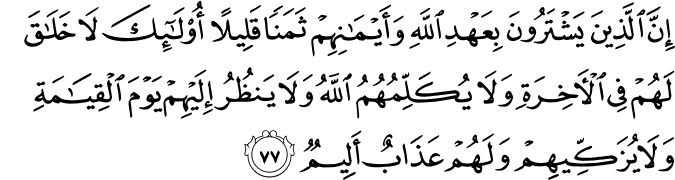 إِنَّ ٱلَّذِينَ يَشْتَرُونَ بِعَهْدِ ٱللَّهِ وَأَيْمَـٰنِهِمْ ثَمَنًا قَلِيلًا أُو۟لَـٰٓئِكَ لَا خَلَـٰقَ
لَهُمْ فِى ٱلْـَٔاخِرَةِ وَلَا يُكَلِّمُهُمُ ٱللَّهُ وَلَا يَنظُرُ إِلَيْهِمْ يَوْمَ ٱلْقِيَـٰمَةِ
وَلَا يُزَكِّيهِمْ وَلَهُمْ عَذَابٌ أَلِيمٌ ٧٧